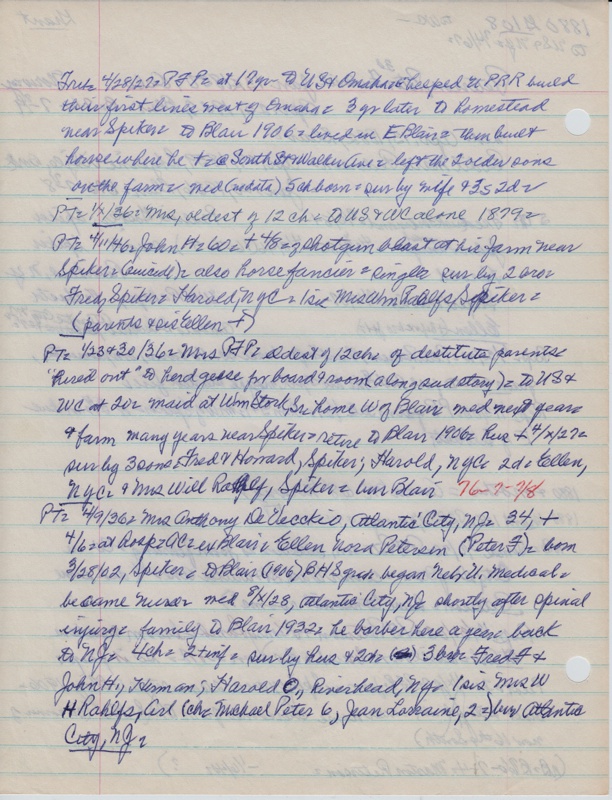 Fred= 4/28/27= P F P= at 17 yr= to US & Omaha & helped UPRR build
their first lines west of Omaha= 3 yr later to homestead
near Spiker= to Blair 1906= lived in E Blair= then built
house where he += @ South St & Walker Ave= left the 2 older sons
on the farm= med (no date) 5 ch born= sur by wife & 3s 2d=
PT= 1/x/36= Mrs, oldest of 12 ch= to US & WC alone 1879=
PT= 4/11/46= John H= 60= + 4/8= of shotgun blast at his farm near
Spiker= (suicide)= also horse fancier= single= sur by 2 bro=
Fred, Spiker= Harold, NYC= 1 sis Mrs Wm Rahlfs, Spiker=
(parents & sis Ellen +)
PT= 1/23 & 30/36= Mrs P F P= oldest of 12 ch= of destitute parents=
"hired out" to herd geese for board & room (along sad story)= to US &
WC at 20= maid at Wm Stork, Sr home W of Blair med next year=
& farm many years near Spiker= retire to Blair 1906= Hus + 4/x/27=
sur by 3 sons= Fred & Howard, Spiker; Harold, NYC= 2d= Ellen,
NYC= & Mrs Will Rahlfs, Spiker= bur Blair 76-7-28
PT= 4/9/36= Mrs Anthony De Vecchio, Atlantic City, NJ= 34, +
4/6= at hosp= AC= ex Blair= Ellen Nora Petersen (Peter F)= born
3/28/02, Spiker= to Blair (1906) BHS grad= began Nebr U. medical=
became nurse= med 8/x/28, Atlantic City, NJ shortly after spinal
injury= family to Blair 1932= he barber here a year= back
to NJ= 4 ch= 2 + inf= sur by hus & 2 ch= 3 bro= Fred F &
John H., Herman; Harold O, Riverhead, NY= 1 sis Mrs W
H Rahlfs, Arl (ch= Michael Peter 6, Jean Lorraine, 2=) bur Atlantic
City, NJ=